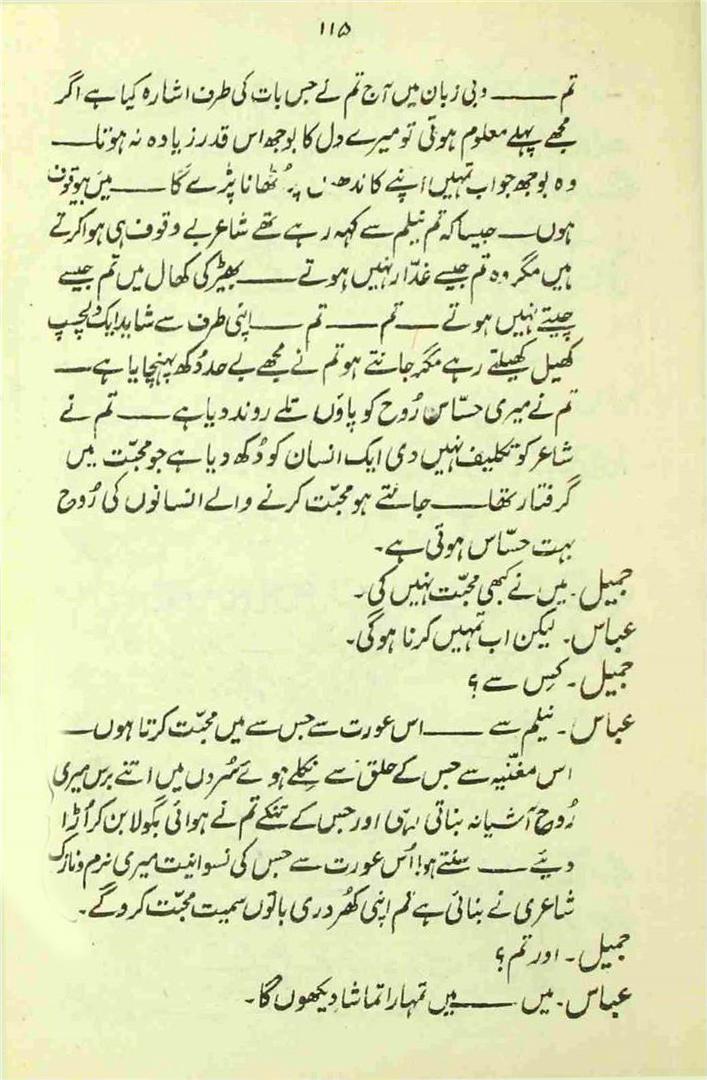 ۱۱۵
تم ــــ دبی زبان میں آج تم نے جس بات کی طرف اشارہ کیا ہے اگر
مجھے پہلے معلوم ہوتی تو میرے دل کا بوجھ اس قدر زیادہ نہ ہوتا ــــ
وہ بوجھ جو اب تمہیں اپنے کاندھوں پر اُٹھانا پڑے گا ــــ میں بیوقوف
ہوں ــ جیسا کہ تم نیلم سے کہہ رہے تھے شاعر بے وقوف ہی ہوا کرتے
ہیں مگر وہ تم جیسے غدّار نہیں ہوتے ــــ بھیڑ کی کھال میں تم جیسے
چیتے نہیں ہوتے ــــ تم ــــ تم ــــ اپنی طرف سے شاید ایک دلچسپ
کھیل کھیلتے رہے مگر جانتے ہو تم نے مجھے بے حد دُکھ پہنچایا ہے ــــ
تم نے میری حسّاس رُوح کو پاؤں تلے روند دیا ہے ــــ تم نے
شاعر کو تکلیف نہیں دی ایک انسان کو دُکھ دیا ہے جو محبّت میں
گرفتار تھا ــــ جانتے ہو محبّت کرنے والے انسانوں کی رُوح
بہت حسّاس ہوتی ہے۔
جمیل۔ میں نے کبھی محبّت نہیں کی۔
عباس۔ لیکن اب تمہیں کرنا ہوگی۔
جمیل۔ کِس سے؟
عباس۔ نیلم سے ــــ اس عورت سے جس سے میں محبّت کرتا ہوں ــــ
اس مغنّیہ سے جس کے حلق سے نِکلے ہوئے سُردں میں اتنے برس میری
رُوح آشیانہ بناتی رہی اور جس کے تنکے تم نے ہوائی بگولا بن کر اُڑا
دیئے ــــ سنتے ہو! اُس عورت سے جس کی نسوانیت میری نرم و نازک
شاعری نے بنائی ہے تم اپنی کھُردری باتوں سمیت محبّت کروگے۔
جمیل۔ اور تم؟
عباس۔ میں ــــ میں تمہارا تماشا دیکھوں گا۔